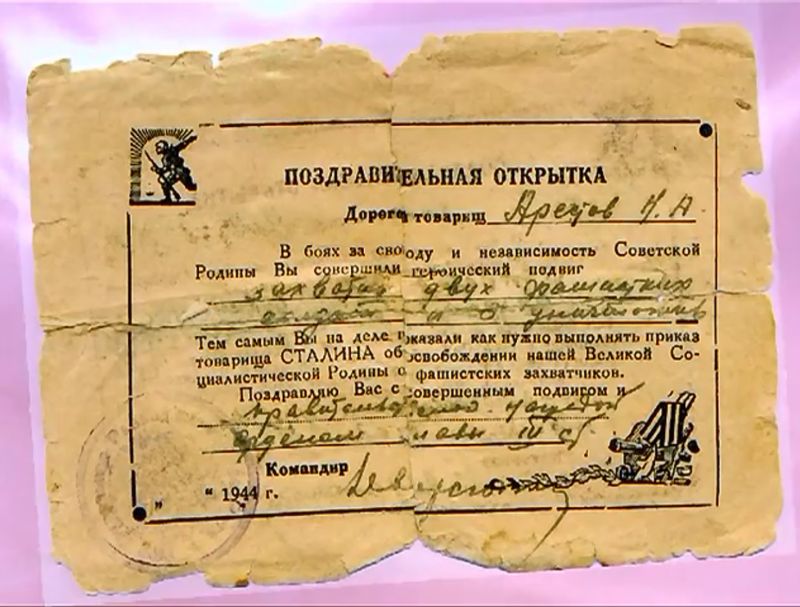 ПОЗДРАВИТЕЛЬНАЯ ОТКРЫТКА
Дорогой товарищ Аретов Н. А.
В боях за свободу и независимость Советской
Родины Вы совершили героический подвиг
захватив двух фашистких
солдат и 8 уничтожив
Тем самым Вы на деле показали как нужно выполнять приказ
товарища СТАЛИНА об освобождении нашей Великой Со-
циалистической Родины от фашистских захватчиков.
Поздравляю Вас с совершенным подвигом и
правительственной наградой
орденом славы III ст
Командир
„ “ 1944 г.